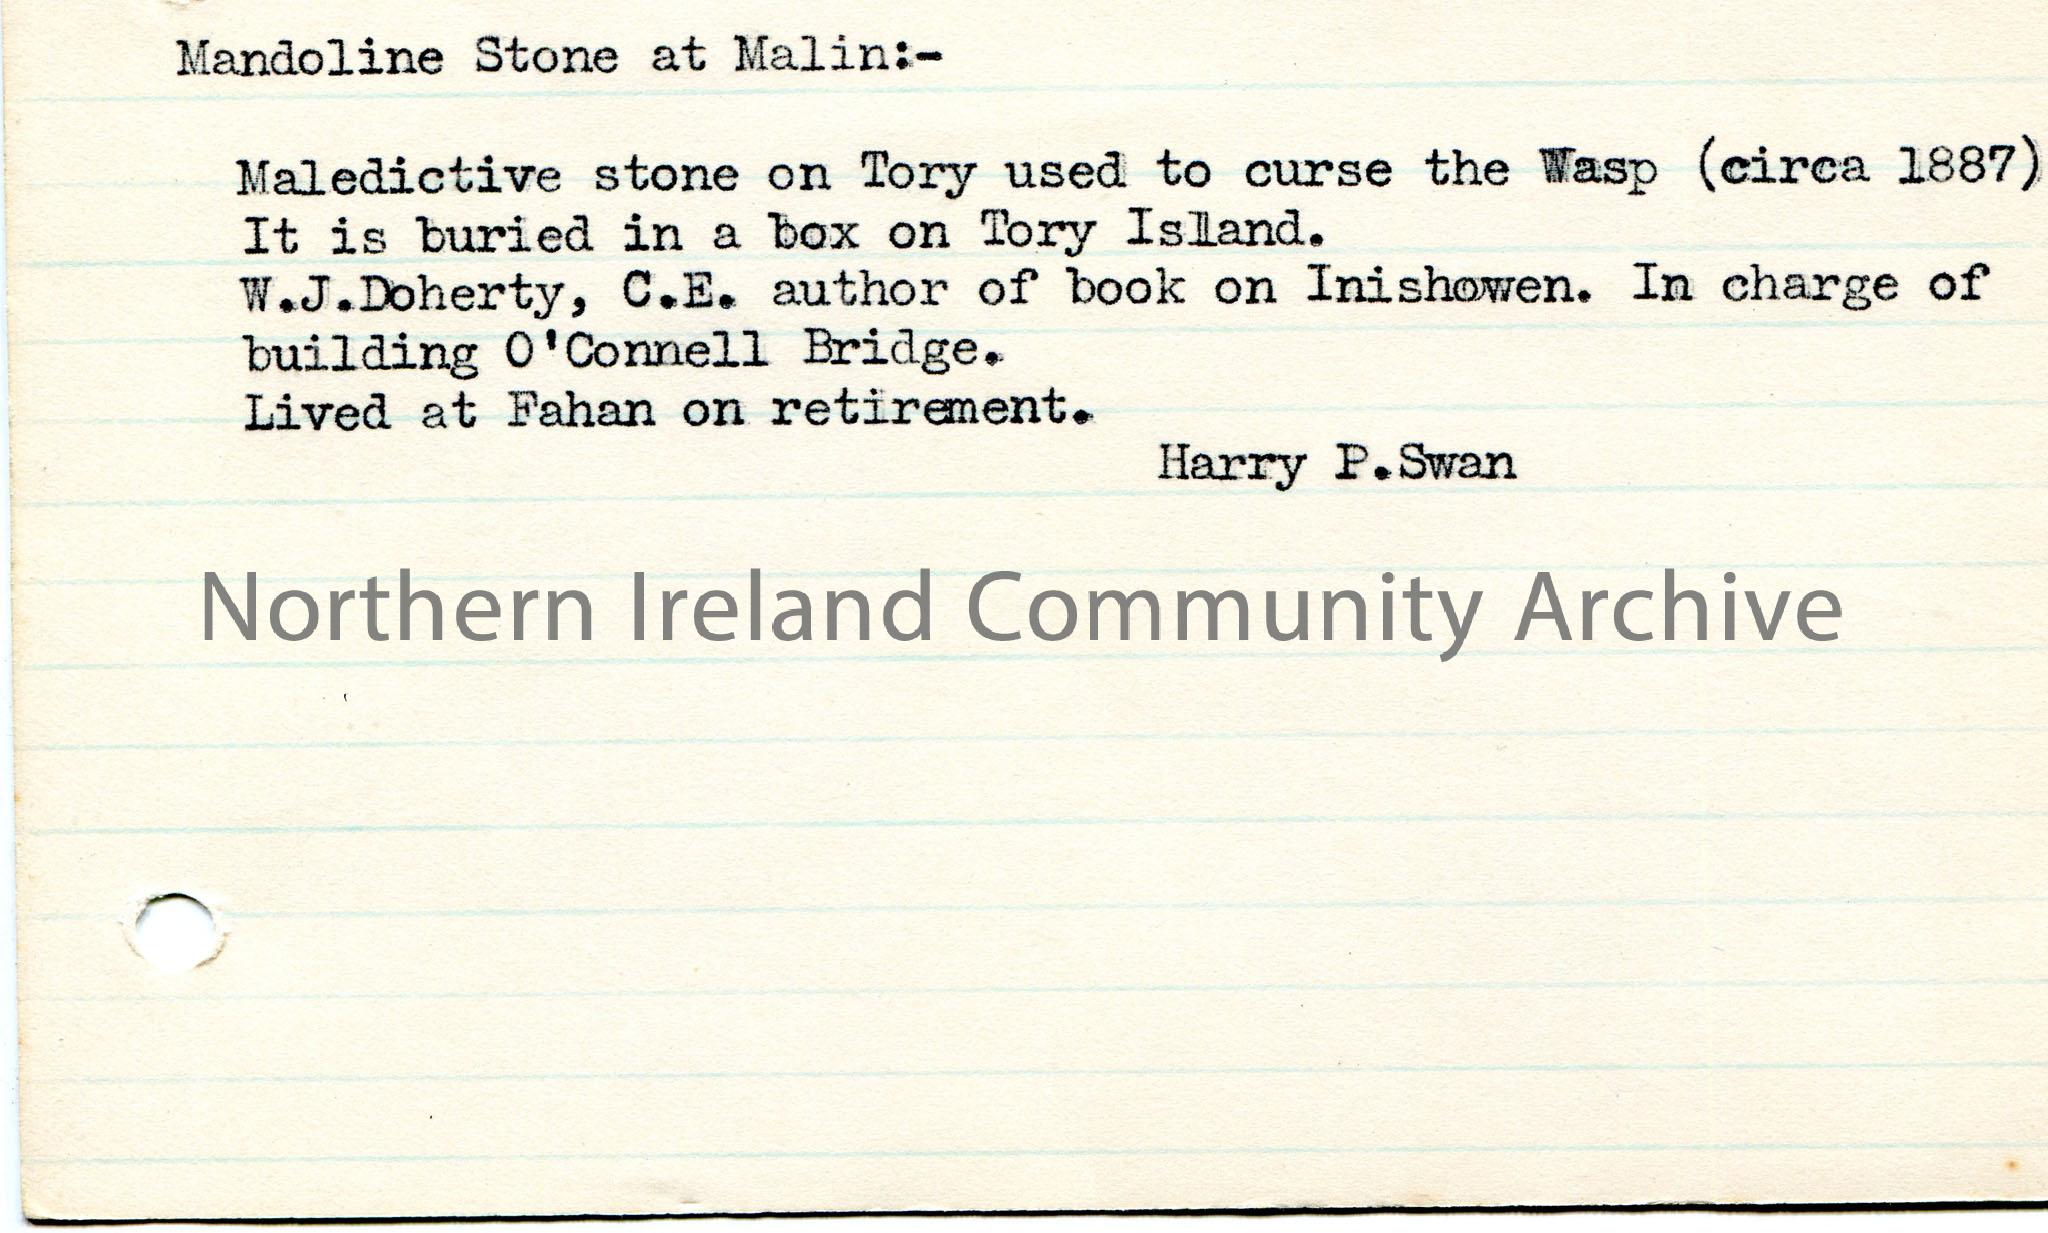 Mandoline Stone at Malin:-
Maledictive stone on Tory used to curse the Wasp (circa 1887)
It is buried in a box on Tory Island.
W.J.Doherty, C.E. author of book on Inishowen. In charge of
building O'Connell Bridge.
Lived at Fahan on retirement.
Harry P.Swan
Northern Ireland Community Archive